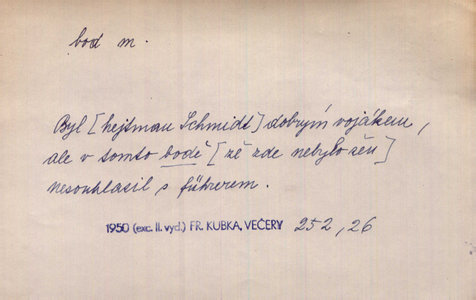 bod m.
Byl [hejtman Schmidt] dobrým vojákem,
ale v tomto bodě [zě zde nebylo žen]
nesouhlasil s führerem.
1950 (exc. II. vyd.) FR. KUBKA, VEČERY 252, 26